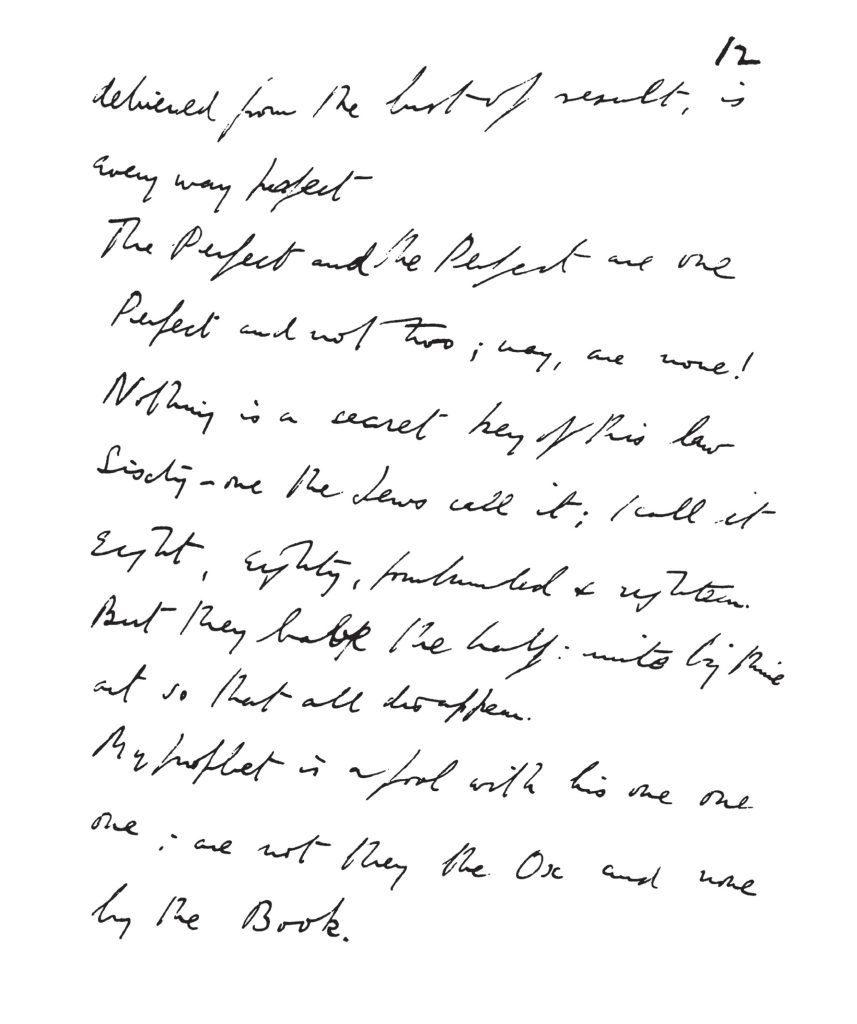 12
delivered from the lust of result, is
every way perfect
The Perfect and the Perfect are one
Perfect and not two; nay, are none!
Nothing is a secret key of this law
Sixty-one the Jews call it; I call it
Eight, eighty, fourhundred & eighteen.
But they have the half: unite by thine
art so that all disappear.
My prophet is a fool with his one one
one; are not they the Ox and none
by the Book.